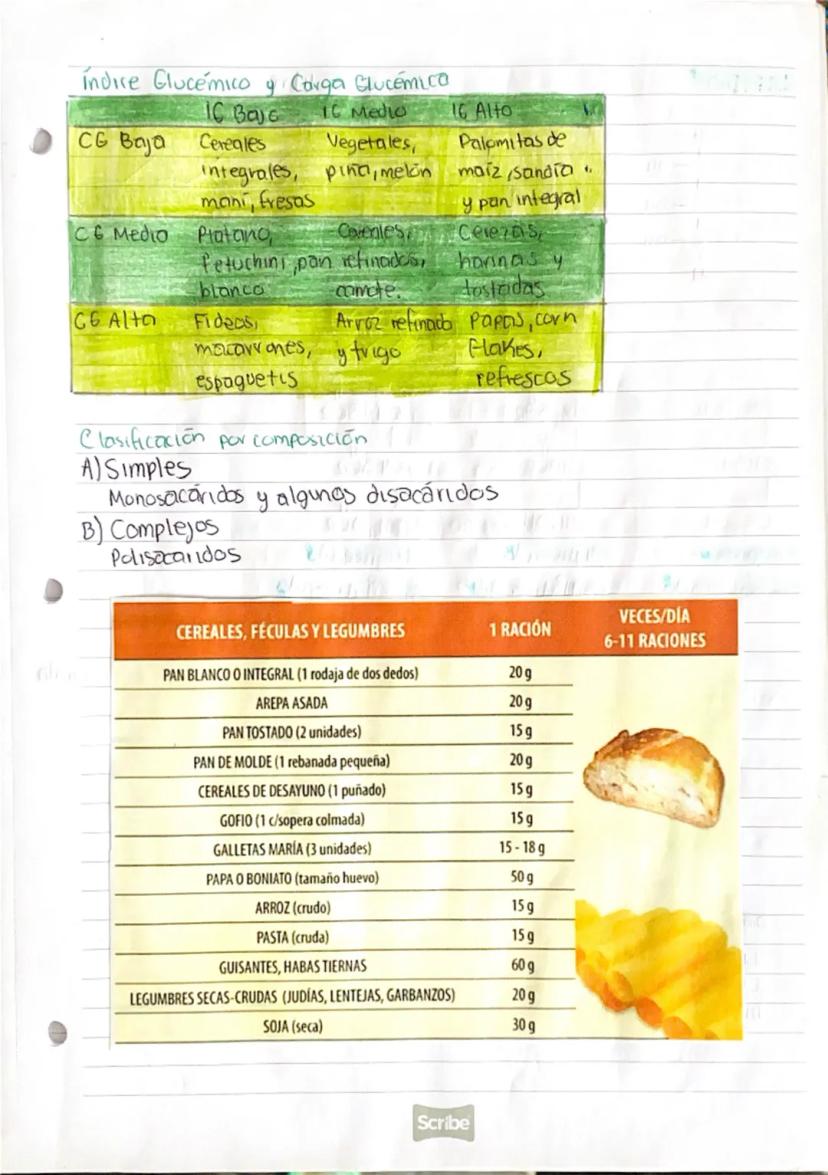 Índice Glucémico y Carga Glucémica
IG Bajo IG Medio IG Alto
CG Baja Cereales Vegetales, Palomitas de
integrales, piña, melón maíz, sandía
maní, fresas y pan integral
CG Medio Platano, Cereales, Cerezas,
fetuchini, pan refinados, harinas y
blanco camote. tostadas
CG Alto Fideos, Arroz refinado Papas, corn
macarrones, y trigo Flakes,
espaguetis refrescos
Clasificación por composición
A) Simples
Monosacáridos y algunos disacáridos
B) Complejos
Polisacaridos
CEREALES, FÉCULAS Y LEGUMBRES 1 RACIÓN VECES/DÍA
6-11 RACIONES
PAN BLANCO O INTEGRAL (1 rodaja de dos dedos) 20 g
AREPA ASADA 20 g
PAN TOSTADO (2 unidades) 15 g
PAN DE MOLDE (1 rebanada pequeña) 20 g
CEREALES DE DESAYUNO (1 puñado) 15 g
GOFIO (1 c/sopera colmada) 15 g
GALLETAS MARÍA (3 unidades) 15 - 18 g
PAPA O BONIATO (tamaño huevo) 50 g
ARROZ (crudo) 15 g
PASTA (cruda) 15 g
GUISANTES, HABAS TIERNAS 60 g
LEGUMBRES SECAS-CRUDAS (JUDÍAS, LENTEJAS, GARBANZOS) 20 g
SOJA (seca) 30 g
Scribe